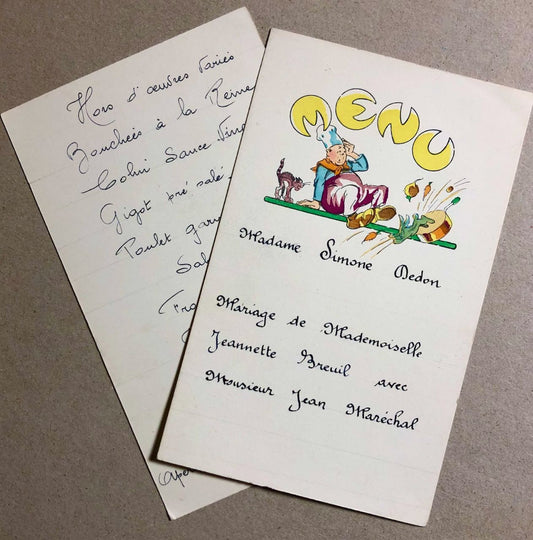 Hors d'œuvres Variés
Bouchées à la Reine
Colin Sauce
Gigot pré salé
Poulet
MENU
Madame Simone Dedon
Mariage de Mademoiselle
Jeannette Breuil avec
Monsieur Jean Maréchal